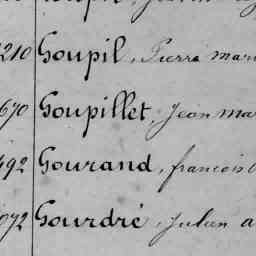 210 Goupil, Pierre mari
670 Goupillet, Jean Mar
492 Gourand, francois
072 Gourdré, Julien a